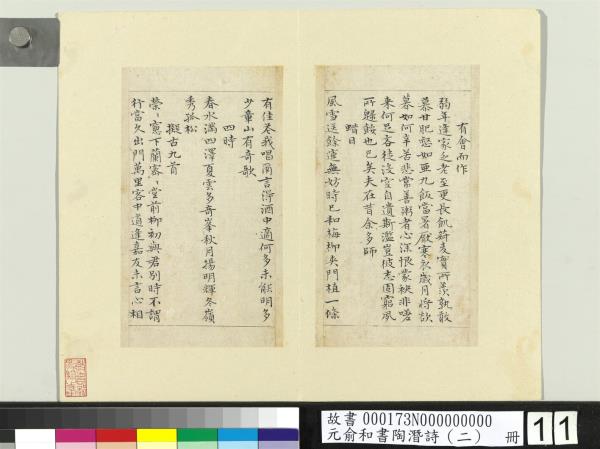 有會而作
弱年逢家乏老至更長飢菽麥實所羨孰敢
慕甘肥惄如亞九飯當暑厭寒衣歲月將欲
暮如何辛苦悲常善粥者心深恨蒙袂非嗟
來何足吝徒沒空自遺斯濫豈彼志固窮夙
所歸餒也已矣夫在昔余多師
蜡日
風雪送餘運無妨時已和梅柳夾門植一條
有佳花我唱爾言得酒中適何多未能明多
少章山有奇歌
四時
春水滿四澤夏雲多奇峯秋月揚明輝冬嶺
秀孤松
擬古九首
榮〻窓下蘭密〻堂前柳初與君別時不謂
行當久出門萬里客中道逢嘉友未言心相
故書000173N000000000
元俞和書陶潛詩(二) 冊
11